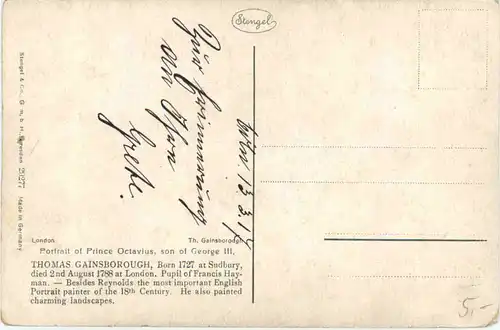 Stengel
Zur Erinnerung
von Ihrer
Gretl.
Wien. 13.3.17
Stengel & Co., G. m. b. H., Dresden 29277 Made in Germany
London. Th. Gainsborough
Portrait of Prince Octavius, son of George III.
THOMAS GAINSBOROUGH, Born 1727 at Sudbury,
died 2nd August 1788 at London. Pupil of Francis Hay-
man. — Besides Reynolds the most important English
Portrait painter of the 18th Century. He also painted
charming landscapes.
5,-